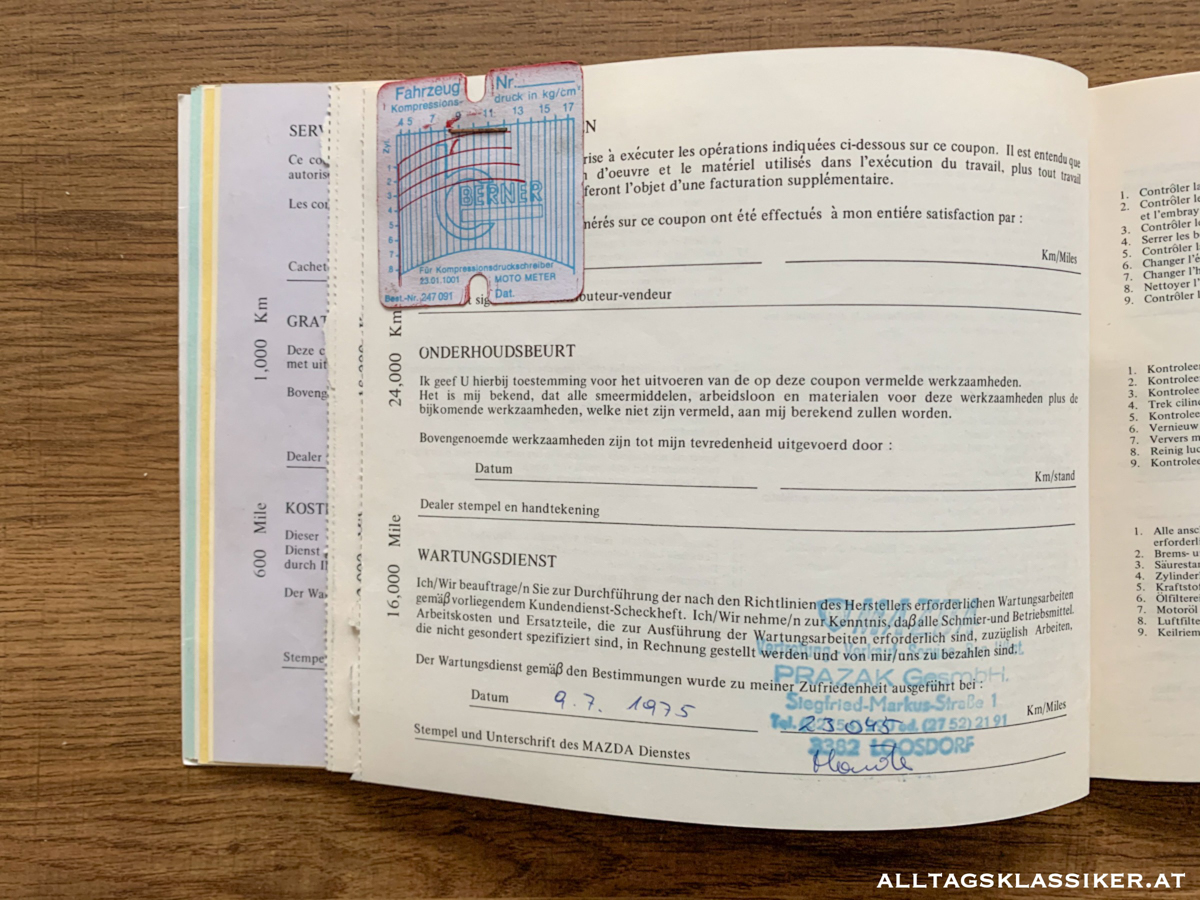 SERV
Ce co
autoris
Les con
Cachet
1,000 Km
GRAT
Deze c
met uit
Boveng
Dealer
600 Mile
KOSTE
Dieser
Dienst
durch I
Der Wa
Stempe
Fahrzeug Nr.
Kompressions- druck in kg/cm²
4 5 7 9 11 13 15 17
Zyl.
1
2
3
4
5
6
7
8
BERNER
Für Kompressionsdruckschreiber
23.01.1001 MOTO METER
Best.-Nr. 247 091 Dat.
EN
rise à exécuter les opérations indiquées ci-dessous sur ce coupon. Il est entendu que
d'oeuvre et le matériel utilisés dans l'exécution du travail, plus tout travail
feront l'objet d'une facturation supplémentaire.
nérés sur ce coupon ont été effectués à mon entiére satisfaction par :
Km/Miles
t sig
buteur-vendeur
24,000 Km
ONDERHOUDSBEURT
Ik geef U hierbij toestemming voor het uitvoeren van de op deze coupon vermelde werkzaamheden.
Het is mij bekend, dat alle smeermiddelen, arbeidsloon en materialen voor deze werkzaamheden plus de
bijkomende werkzaamheden, welke niet zijn vermeld, aan mij berekend zullen worden.
Bovengenoemde werkzaamheden zijn tot mijn tevredenheid uitgevoerd door :
Datum Km/stand
Dealer stempel en handtekening
16,000 Mile
WARTUNGSDIENST
Ich/Wir beauftrage/n Sie zur Durchführung der nach den Richtlinien des Herstellers erforderlichen Wartungsarbeiten
gemäß vorliegendem Kundendienst-Scheckheft. Ich/Wir nehme/n zur Kenntnis, daß alle Schmier-und Betriebsmittel.
Arbeitskosten und Ersatzteile, die zur Ausführung der Wartungsarbeiten erforderlich sind, zuzüglich Arbeiten,
die nicht gesondert spezifiziert sind, in Rechnung gestellt werden und von mir/uns zu bezahlen sind.
Der Wartungsdienst gemäß den Bestimmungen wurde zu meiner Zufriedenheit ausgeführt bei :
Datum 9. 7. 1975 23045 Km/Miles
Stempel und Unterschrift des MAZDA Dienstes
MAZDA
PRAZAK GesmbH.
Siegfried-Markus-Straße 1
Tel. (27 52) 21 91
3382 LOOSDORF
1. Contrôler la
2. Contrôler le
et l'embray
3. Contrôler le
4. Serrer les b
5. Contrôler l
6. Changer l'é
7. Changer l'h
8. Nettoyer l'
9. Contrôler l
1. Kontroleer
2. Kontroleer
3. Kontroleer
4. Trek cilind
5. Kontrolee
6. Vernieuw
7. Ververs m
8. Reinig luc
9. Kontrolee
1. Alle ansc
erforderli
2. Brems- u
3. Säurestan
4. Zylinder
5. Kraftstof
6. Ölfiltere
7. Motoröl
8. Luftfilte
9. Keilriem
ALLTAGSKLASSIKER.AT